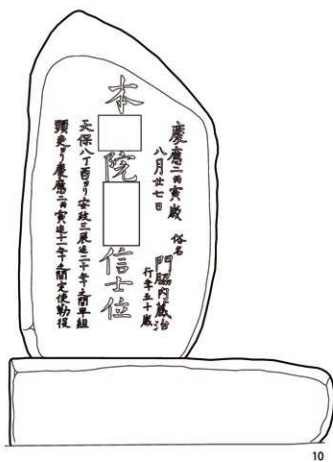 慶應二丙寅歳 俗名 門脇内蔵治
八月廿七日 行年五十歳
本院信士位
天保八丁酉ヨリ安政三辰迄二十年之間組
頭夫ヨリ慶應二丙寅迄十一年之間定使勤役
10